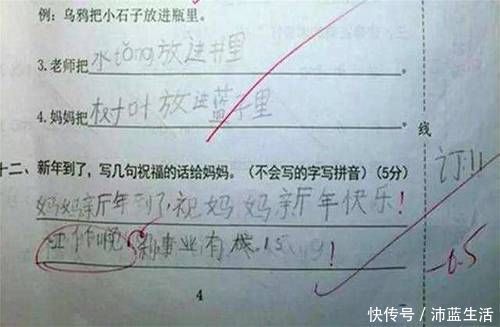 例：乌鸦把小石子放进瓶里。
3.老师把水tǒng放进井里。
4.妈妈把树叶放进蓝子里。
十二、新年到了，写几句祝福的话给妈妈。（不会写的字写拼音）（5分）
妈妈亲斤年到了,祝妈妈亲斤年快乐！
工作悦 事业有
！
线
订
-0.5
4
快传号 / 沛蓝生活